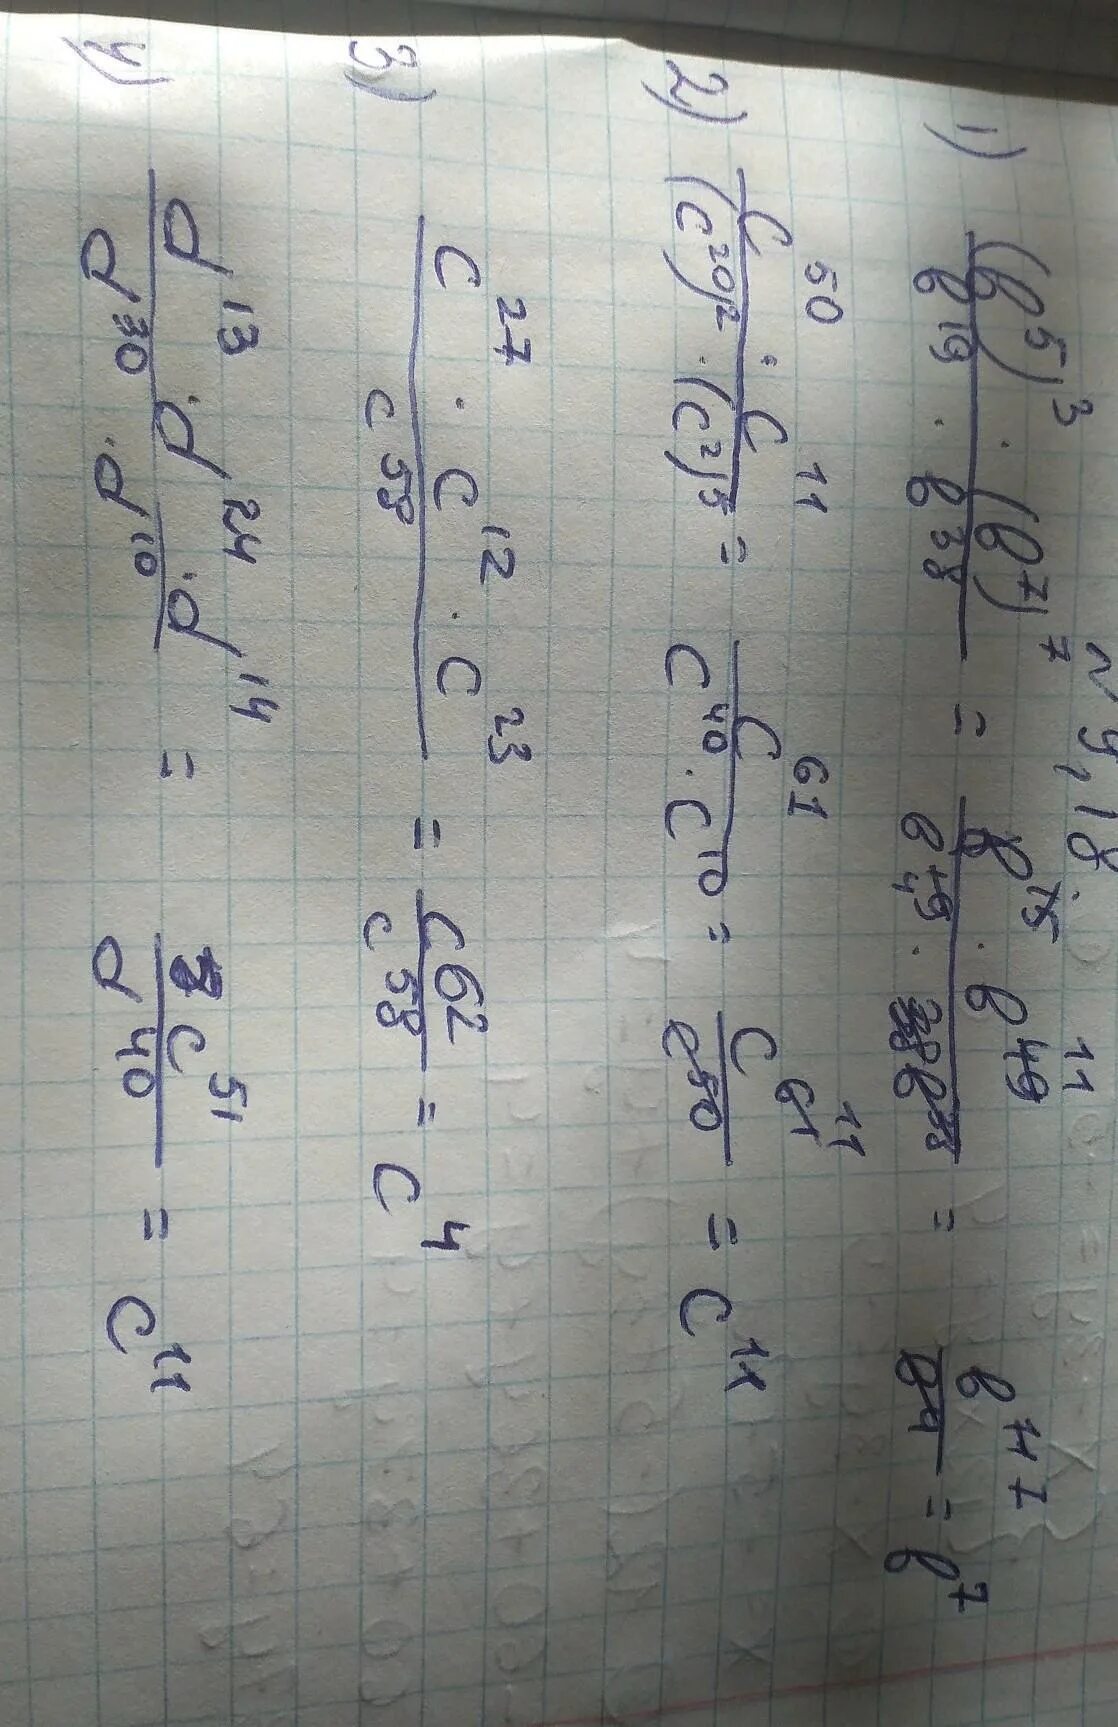 N 9,18.
1) (b⁵)³ · (b⁷)⁷ / b¹⁹ · b³⁸ = b¹⁵ · b⁴⁹ ¹¹ / b¹⁹ ₄ · b³⁸ = b¹¹ ⁷ / b⁴ = b⁷
2) c⁵⁰ · c¹¹ / (c²⁰)² · (c²)⁵ = c⁶¹ / c⁴⁰ · c¹⁰ = c⁶¹ ¹¹ / c⁵⁰ = c¹¹
3) c²⁷ · c¹² · c²³ / c⁵⁸ = c⁶² / c⁵⁸ = c⁴
4) d¹³ · d²⁴ · d¹⁴ / d³⁰ · d¹⁰ = c⁵¹ / d⁴⁰ = c¹¹